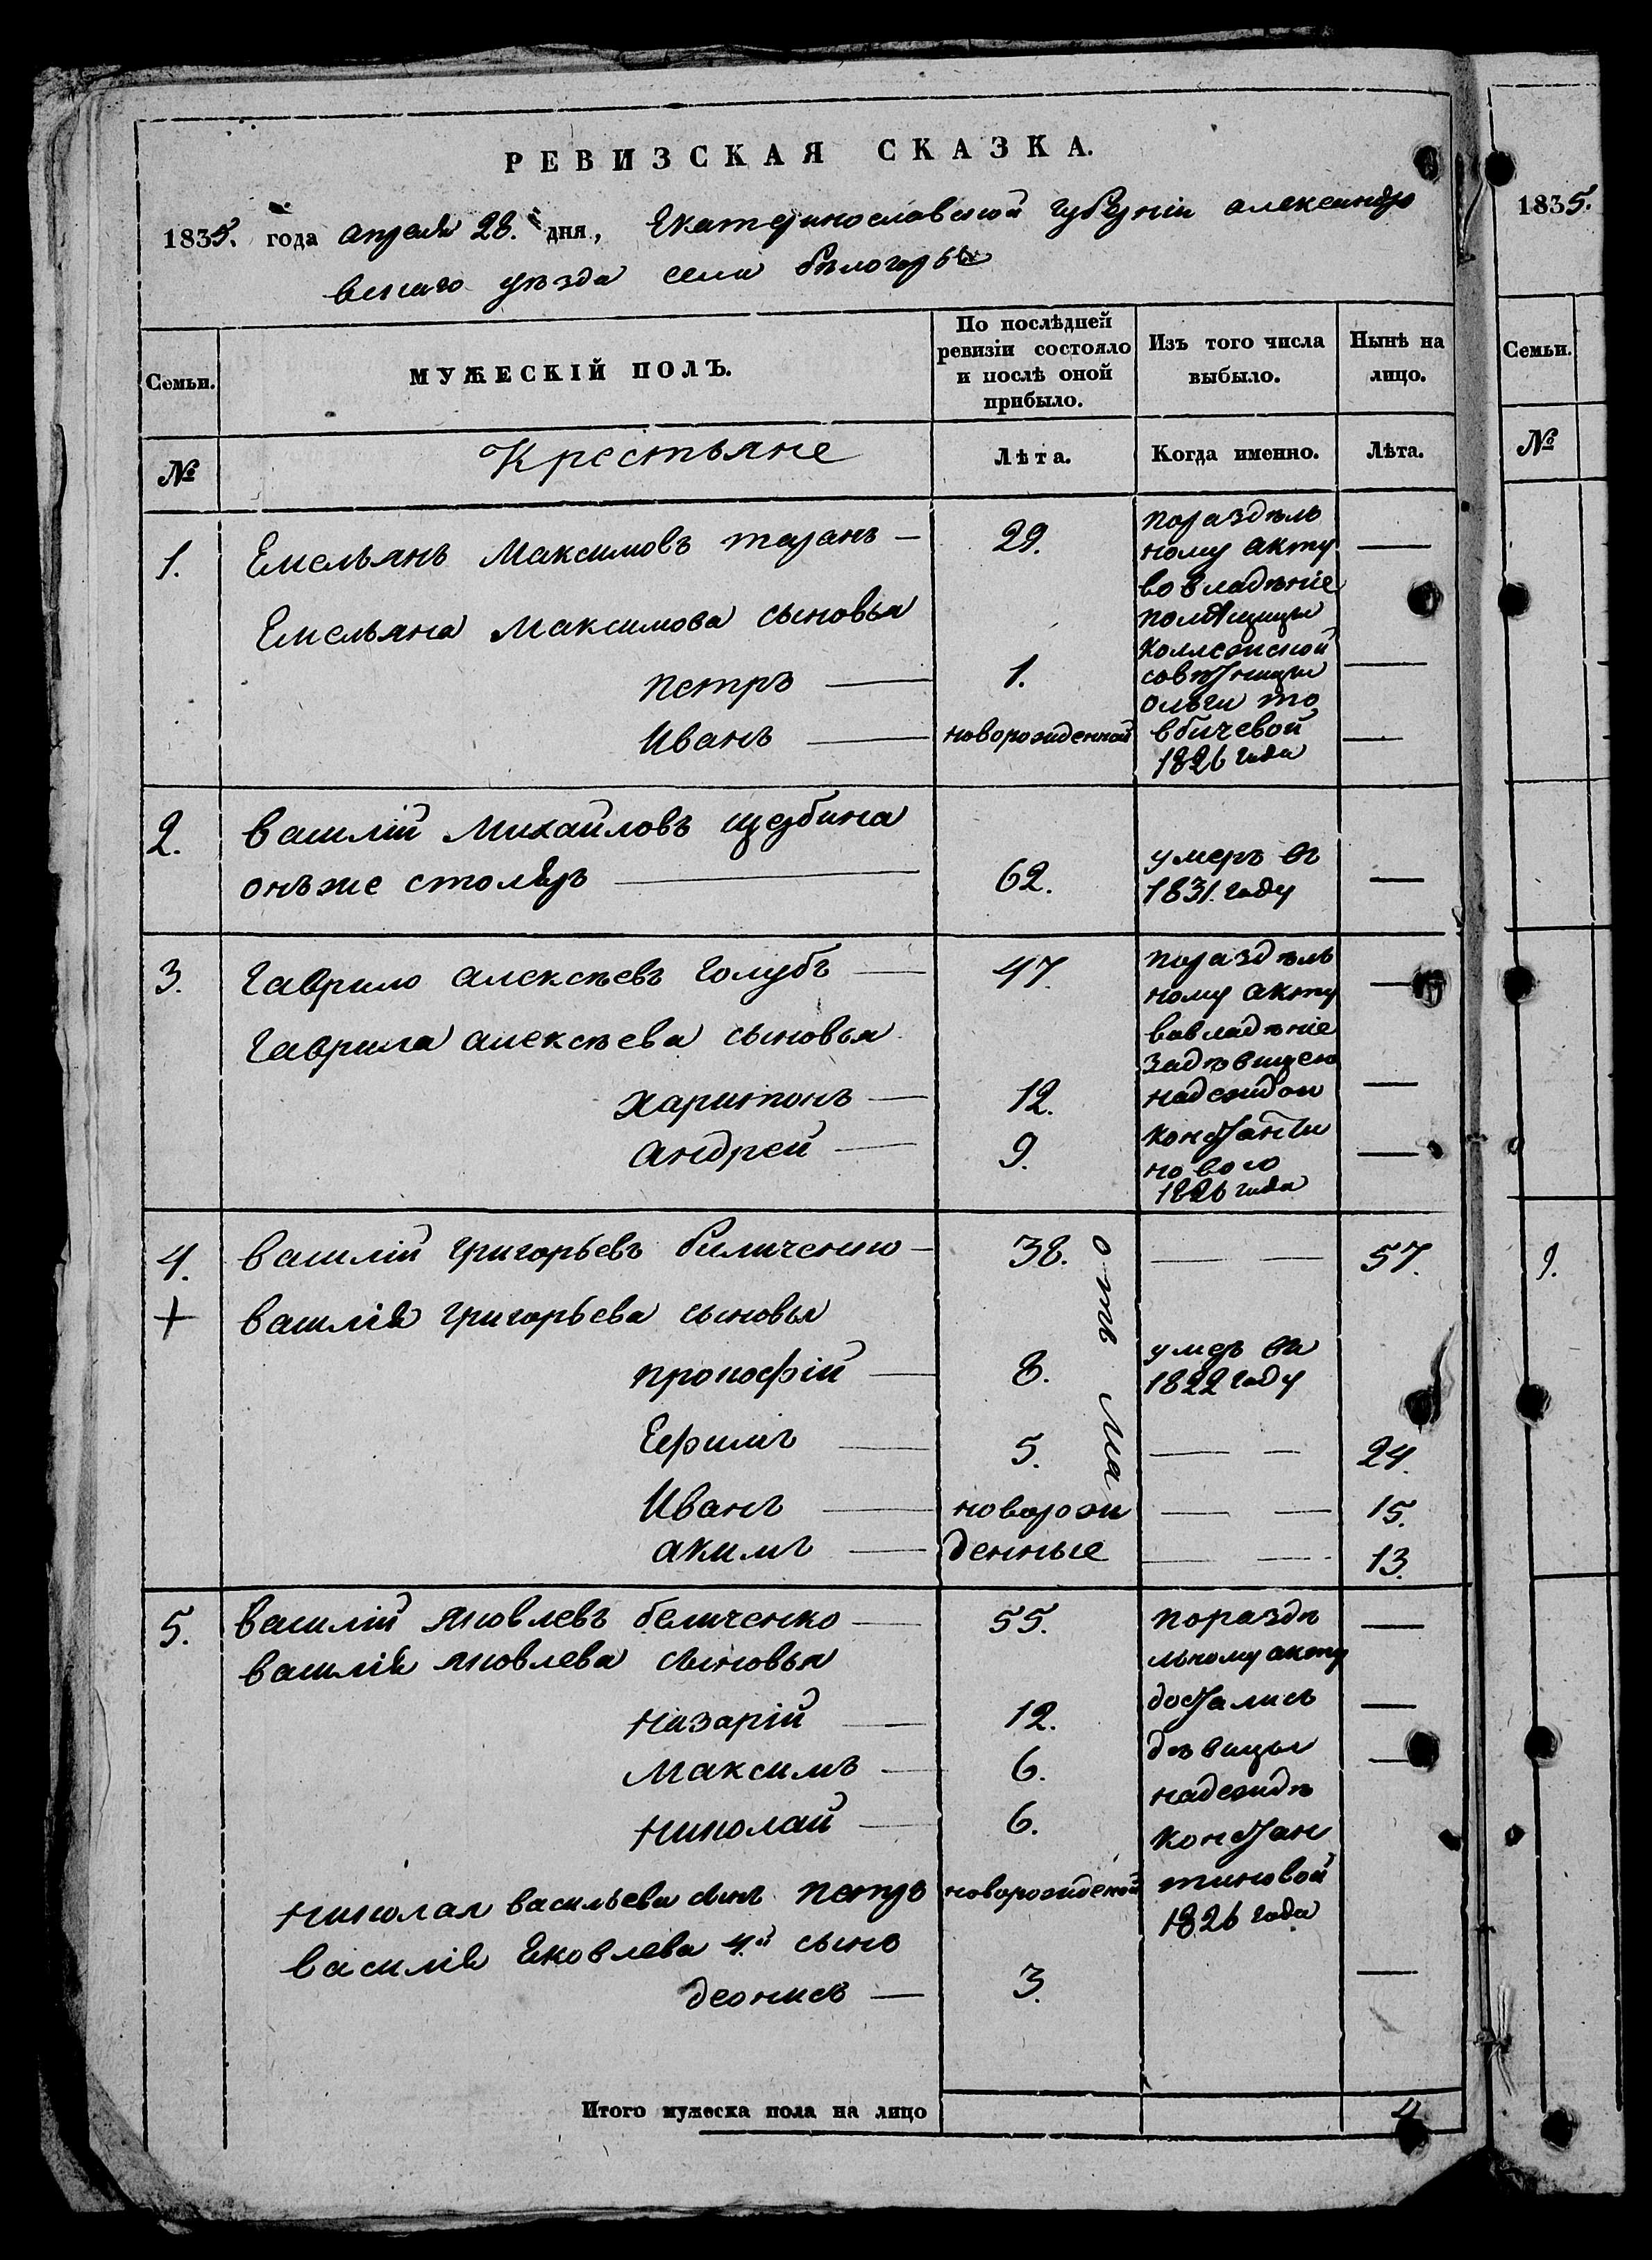 РЕВИЗСКАЯ СКАЗКА.
1835. года апреля 28. дня, Екатеринославской губерніи александро
вскаго уезда села белогорье
1835.
Семьи.
МУЖЕСКІЙ ПОЛЪ.
По послѣдней ревизіи состояло и послѣ оной прибыло.
Изъ того числа выбыло.
Нынѣ на лицо.
Семьи.
№
Крестьяне
Лѣта.
Когда именно.
Лѣта.
№
1. Емельянъ Максимовъ таранъ — 29. поразделъ —
ному акту
во владѣніе
Емельяна Максимова сыновья помѣщицы
коллежской
петръ — 1. советницы —
ольги то
Иванъ — новорожденной вбичевой —
1826 года
2. василій Михайловъ щербина
онъ же столяръ — 62. умеръ въ —
1831. году
3. гаврило алексеевъ голубъ — 47. поразделъ —
ному акту
гаврила алексеева сыновья вовладѣніе
харитонъ — 12. —
андрей — 9. —
1826 года
4. василій григорьевъ биличенко — 38. — — 57.
+ василія григорьева сыновья
прокофій — 8. умеръ въ
1822 году
Ефимъ — 5. — — 24.
Иванъ — новорож — — 15.
акимъ — денные — — 13.
5. василій яковлевъ беличенко — 55. поразде —
василія яковлева сыновья льному акту
назарій — 12. достались —
Максимъ — 6. девицы —
надежде
николай — 6. констан
николая васильева сынъ петръ новорожденой тиновой
1826 года
василія Яковлева 4й сынъ
деонисъ — 3. —
9.
Итого мужеска пола на лицо 4